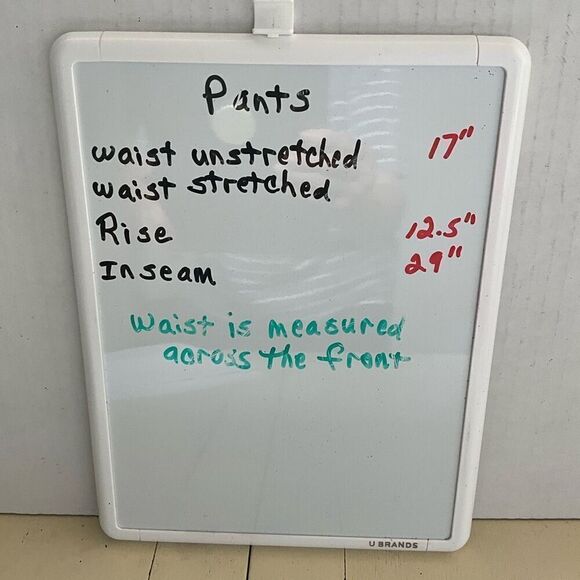 Pants
waist unstretched 17"
waist stretched
Rise 12.5"
Inseam 29"
Waist is measured
across the front
U BRANDS